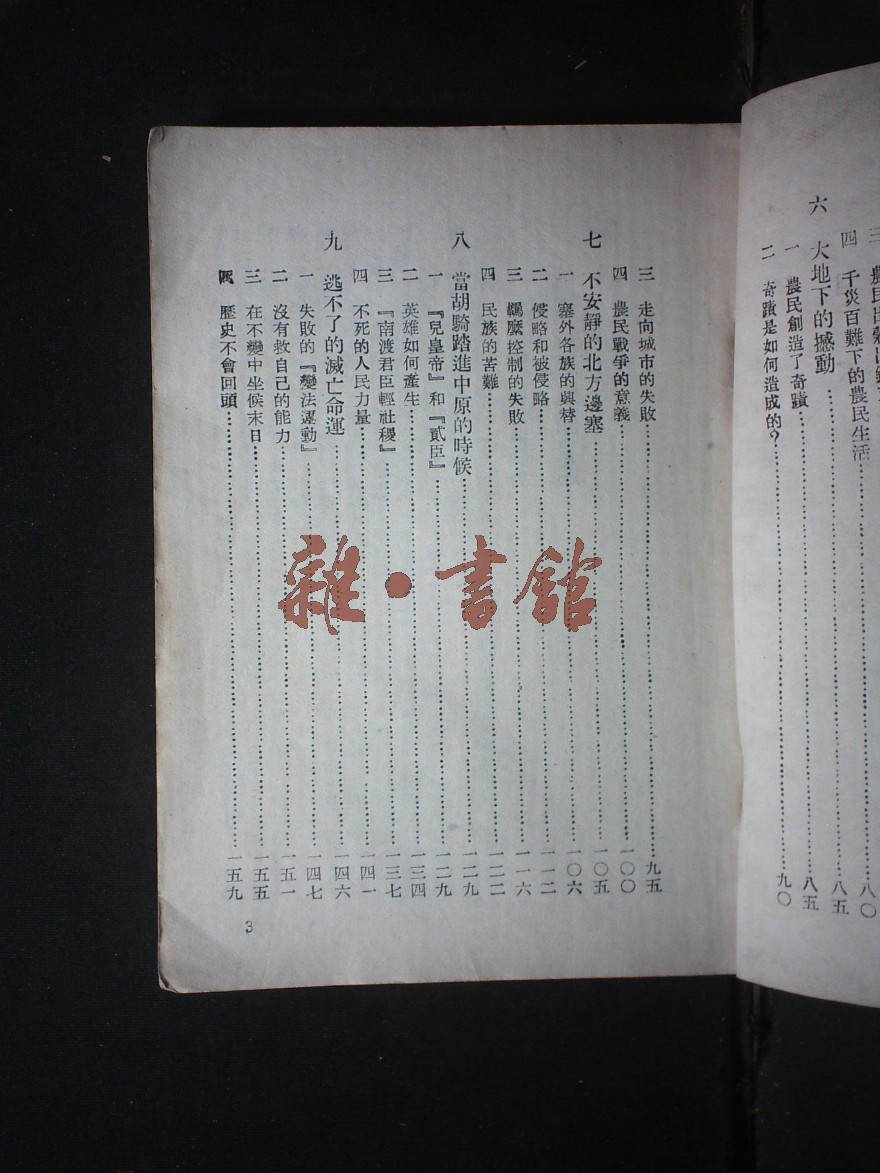 四 千災百難下的農民生活……八五
六 大地下的撼動……八五
一 農民創造了奇蹟……
二 奇蹟是如何造成的？……九〇
三 走向城市的失敗……九五
四 農民戰爭的意義……一〇〇
七 不安靜的北方邊塞……一〇五
一 塞外各族的興替……一〇六
二 侵略和被侵略……一一二
三 羈縻控制的失敗……一一六
四 民族的苦難……一二二
八 當胡騎踏進中原的時候……一二九
一 『兒皇帝』和『貳臣』……一二九
二 英雄如何產生……一三四
三 『南渡君臣輕社稷』……一三七
四 不死的人民力量……一四一
九 逃不了的滅亡命運……一四六
一 失敗的『變法運動』……一四七
二 沒有救自己的能力……一五一
三 在不變中坐候末日……一五五
四 歷史不會回頭……一五九
3
雜·書館